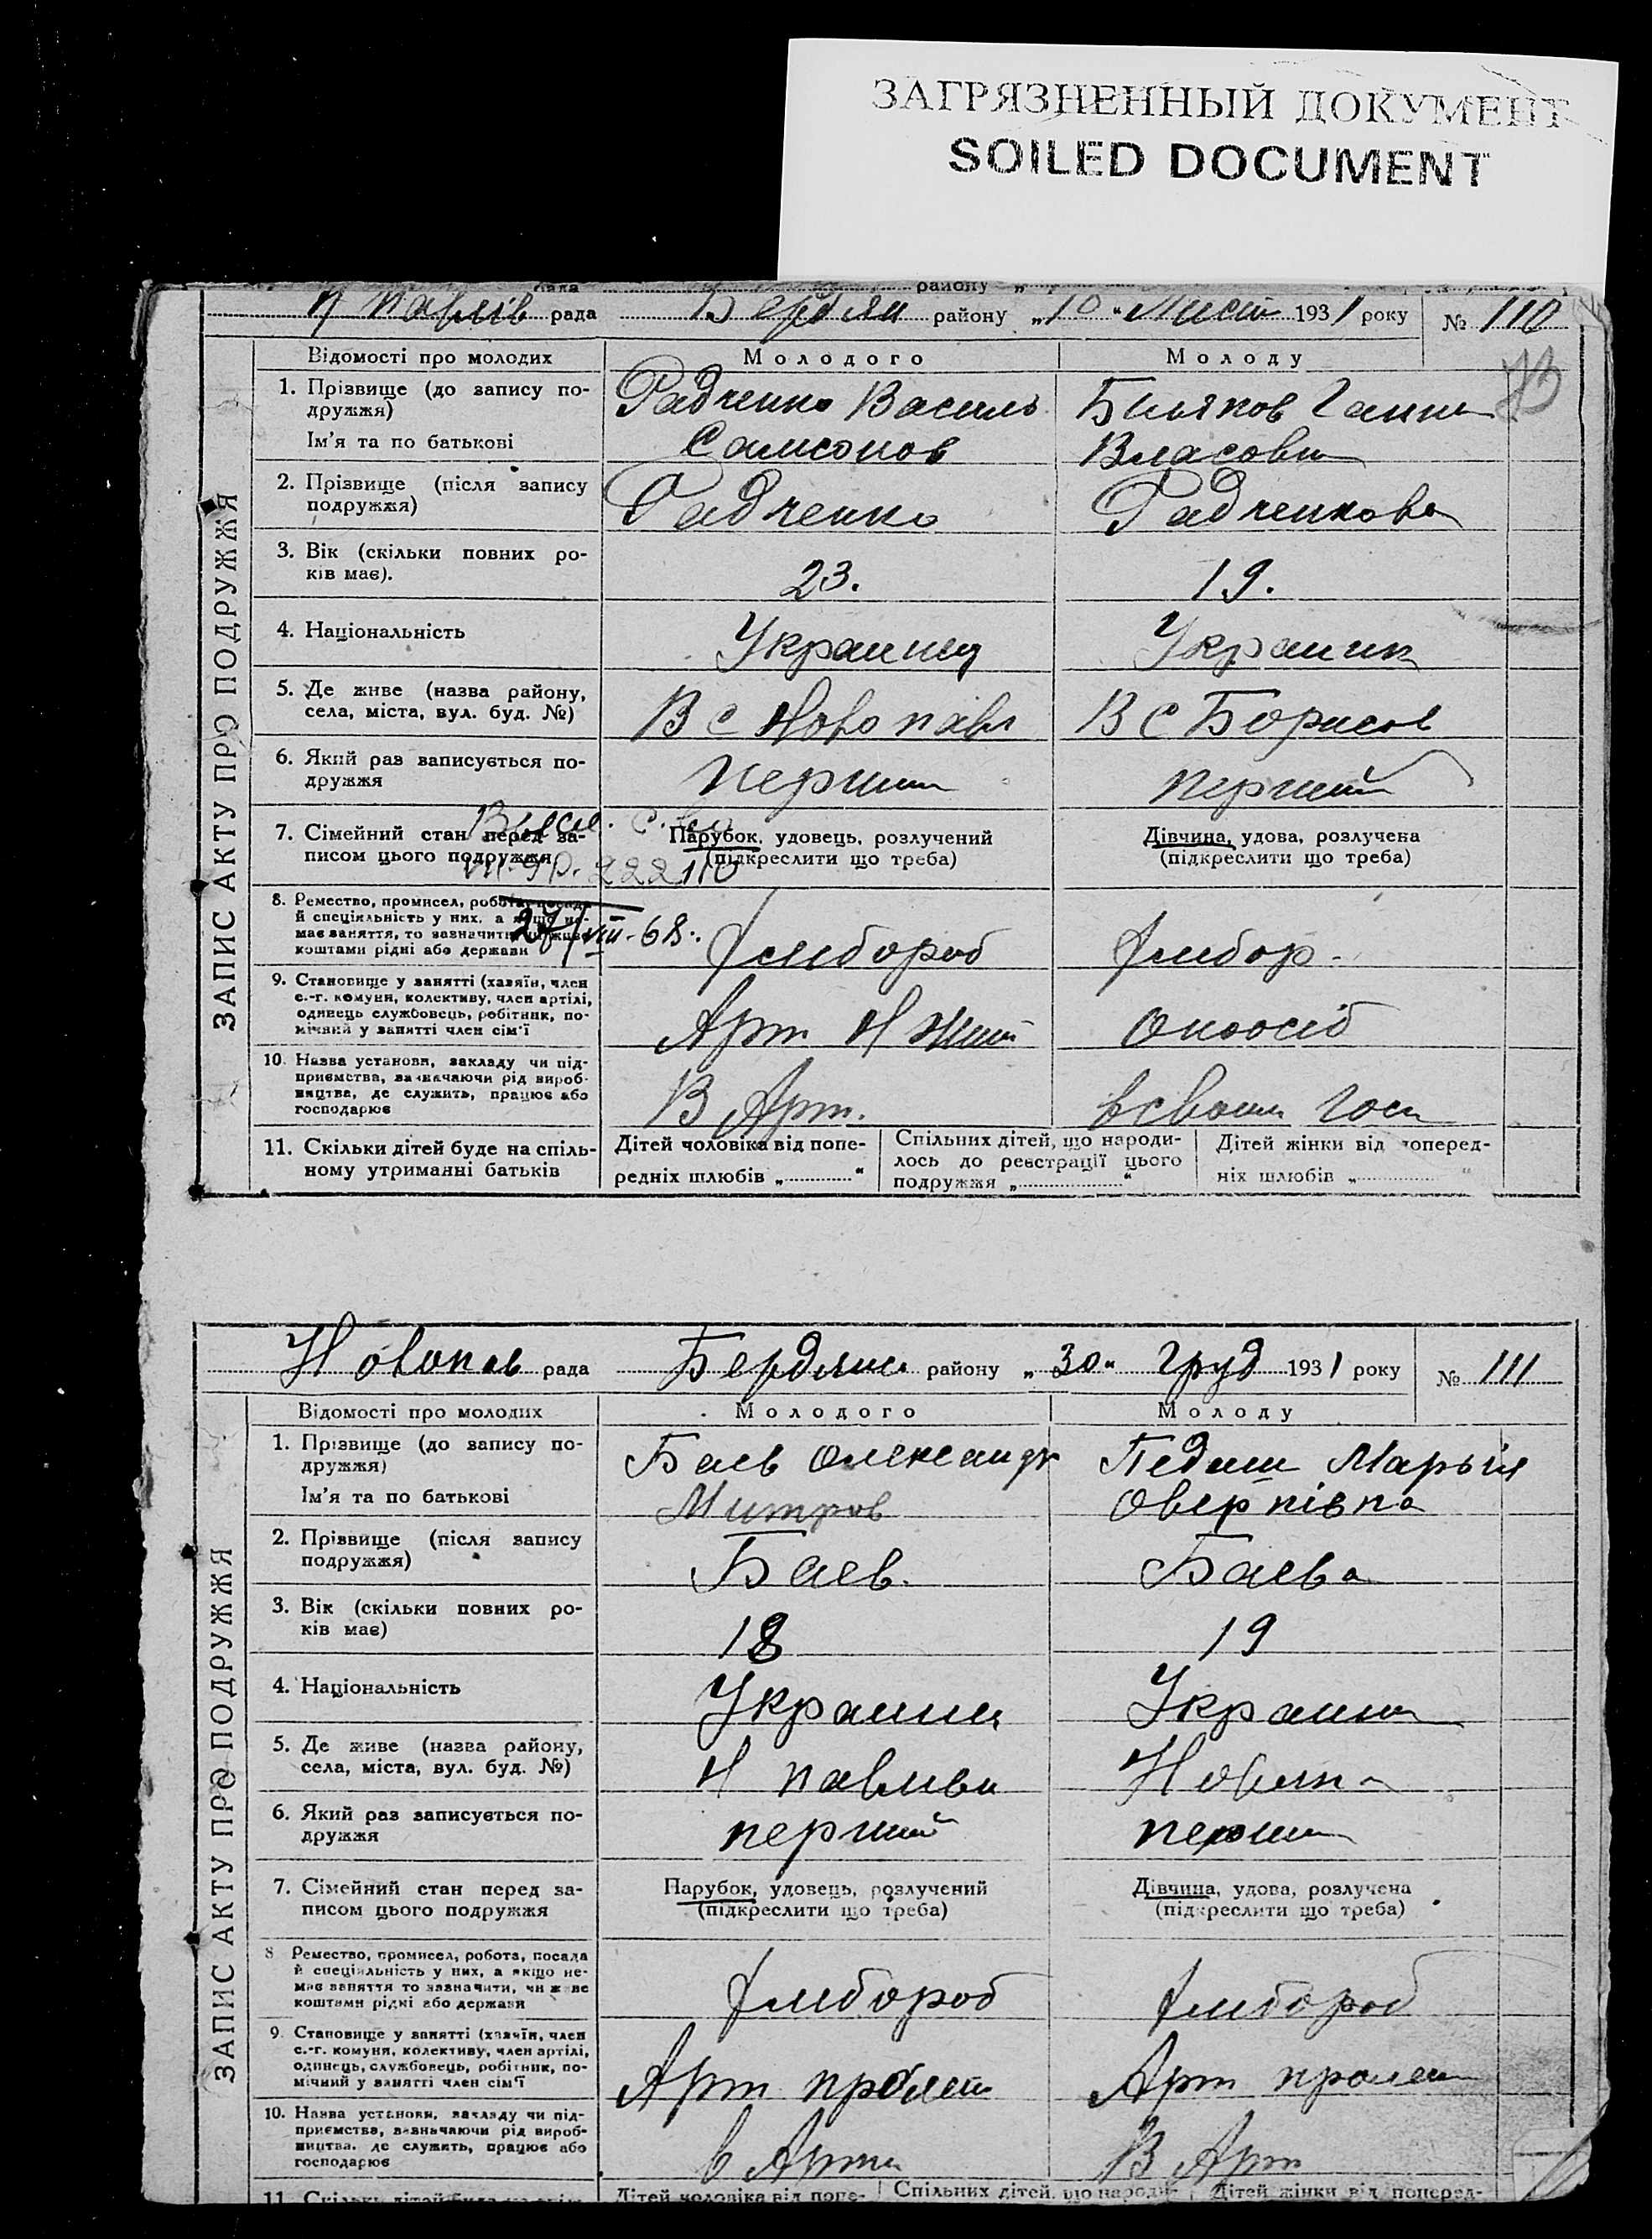 ЗАГРЯЗНЕННЫЙ ДОКУМЕНТ
SOILED DOCUMENT
рада району
Н Павлів рада Бердян району „10“ Лист 1931 року № 110
Відомості про молодих Молодого Молоду
ЗАПИС АКТУ ПРО ПОДРУЖЖЯ
1. Прізвище (до запису по-
дружжя)
Ім'я та по батькові
Радченко Василь
Самсонов
Ганна
Власовн
2. Прізвище (після запису
подружжя)
Радченко
Радченкова
3. Вік (скільки повних ро-
ків має).
23.
19.
4. Національність
Украинец
Украинк
5. Де живе (назва району,
села, міста, вул. буд. №)
В с Ново павл
В с Борисов
6. Який раз записується по-
дружжя
перший
перший
7. Сімейний стан перед за-
писом цього подружжя
Парубок, удовець, розлучений
(підкреслити що треба)
Дівчина, удова, розлучена
(підкреслити що треба)
222110
27/VIII-68.
8. Ремество, промисел, робота, посада
й спеціяльність у них, а якщо не-
має заняття, то зазначити, чи живе
коштами рідні або держави
9. Становище у занятті (хазяїн, член
с.-г. комуни, колективу, член артілі,
одинець службовець, робітник, по-
мічний у занятті член сім'ї
Арт Н
10. Назва установи, закладу чи під-
приємства, зазначаючи рід вироб-
ництва, де служить, працює або
господарює
В Арт.
в своем Госп
11. Скільки дітей буде на спіль-
ному утриманні батьків
Дітей чоловіка від попе-
редніх шлюбів „ “
Спільних дітей, що народи-
лось до реєстрації цього
подружжя „ “
Дітей жінки від поперед-
ніх шлюбів „ “
Новопав рада Бердянс району „30“ Груд 1931 року № 111
Відомості про молодих Молодого Молоду
ЗАПИС АКТУ ПРО ПОДРУЖЖЯ
1. Прізвище (до запису по-
дружжя)
Ім'я та по батькові
Баев Олександр
Митров
Марыя
Оверківна
2. Прізвище (після запису
подружжя)
Баев.
Баева
3. Вік (скільки повних ро-
ків має)
18
19
4. Національність
Украинец
Украинк
5. Де живе (назва району,
села, міста, вул. буд. №)
Н павливк
6. Який раз записується по-
дружжя
перший
перший
7. Сімейний стан перед за-
писом цього подружжя
Парубок, удовець, розлучений
(підкреслити що треба)
Дівчина, удова, розлучена
(підкреслити що треба)
8 Ремество, промисел, робота, посада
й спеціяльність у них, а якщо не-
має заняття то зазначити, чи живе
коштами рідні або держави
9. Становище у занятті (хазяїн, член
с.-г. комуни, колективу, член артілі,
одинець, службовець, робітник, по-
мічний у занятті член сім'ї
Арт пролет
Арт пролет
10. Назва установи, закладу чи під-
приємства, зазначаючи рід вироб-
ництва, де служить, працює або
господарює
в Арти
В Арт
11 Скільки дітей буде на спіль-
Дітей чоловіка від попе-
Спільних дітей, що народи-
Дітей жінки від поперед-